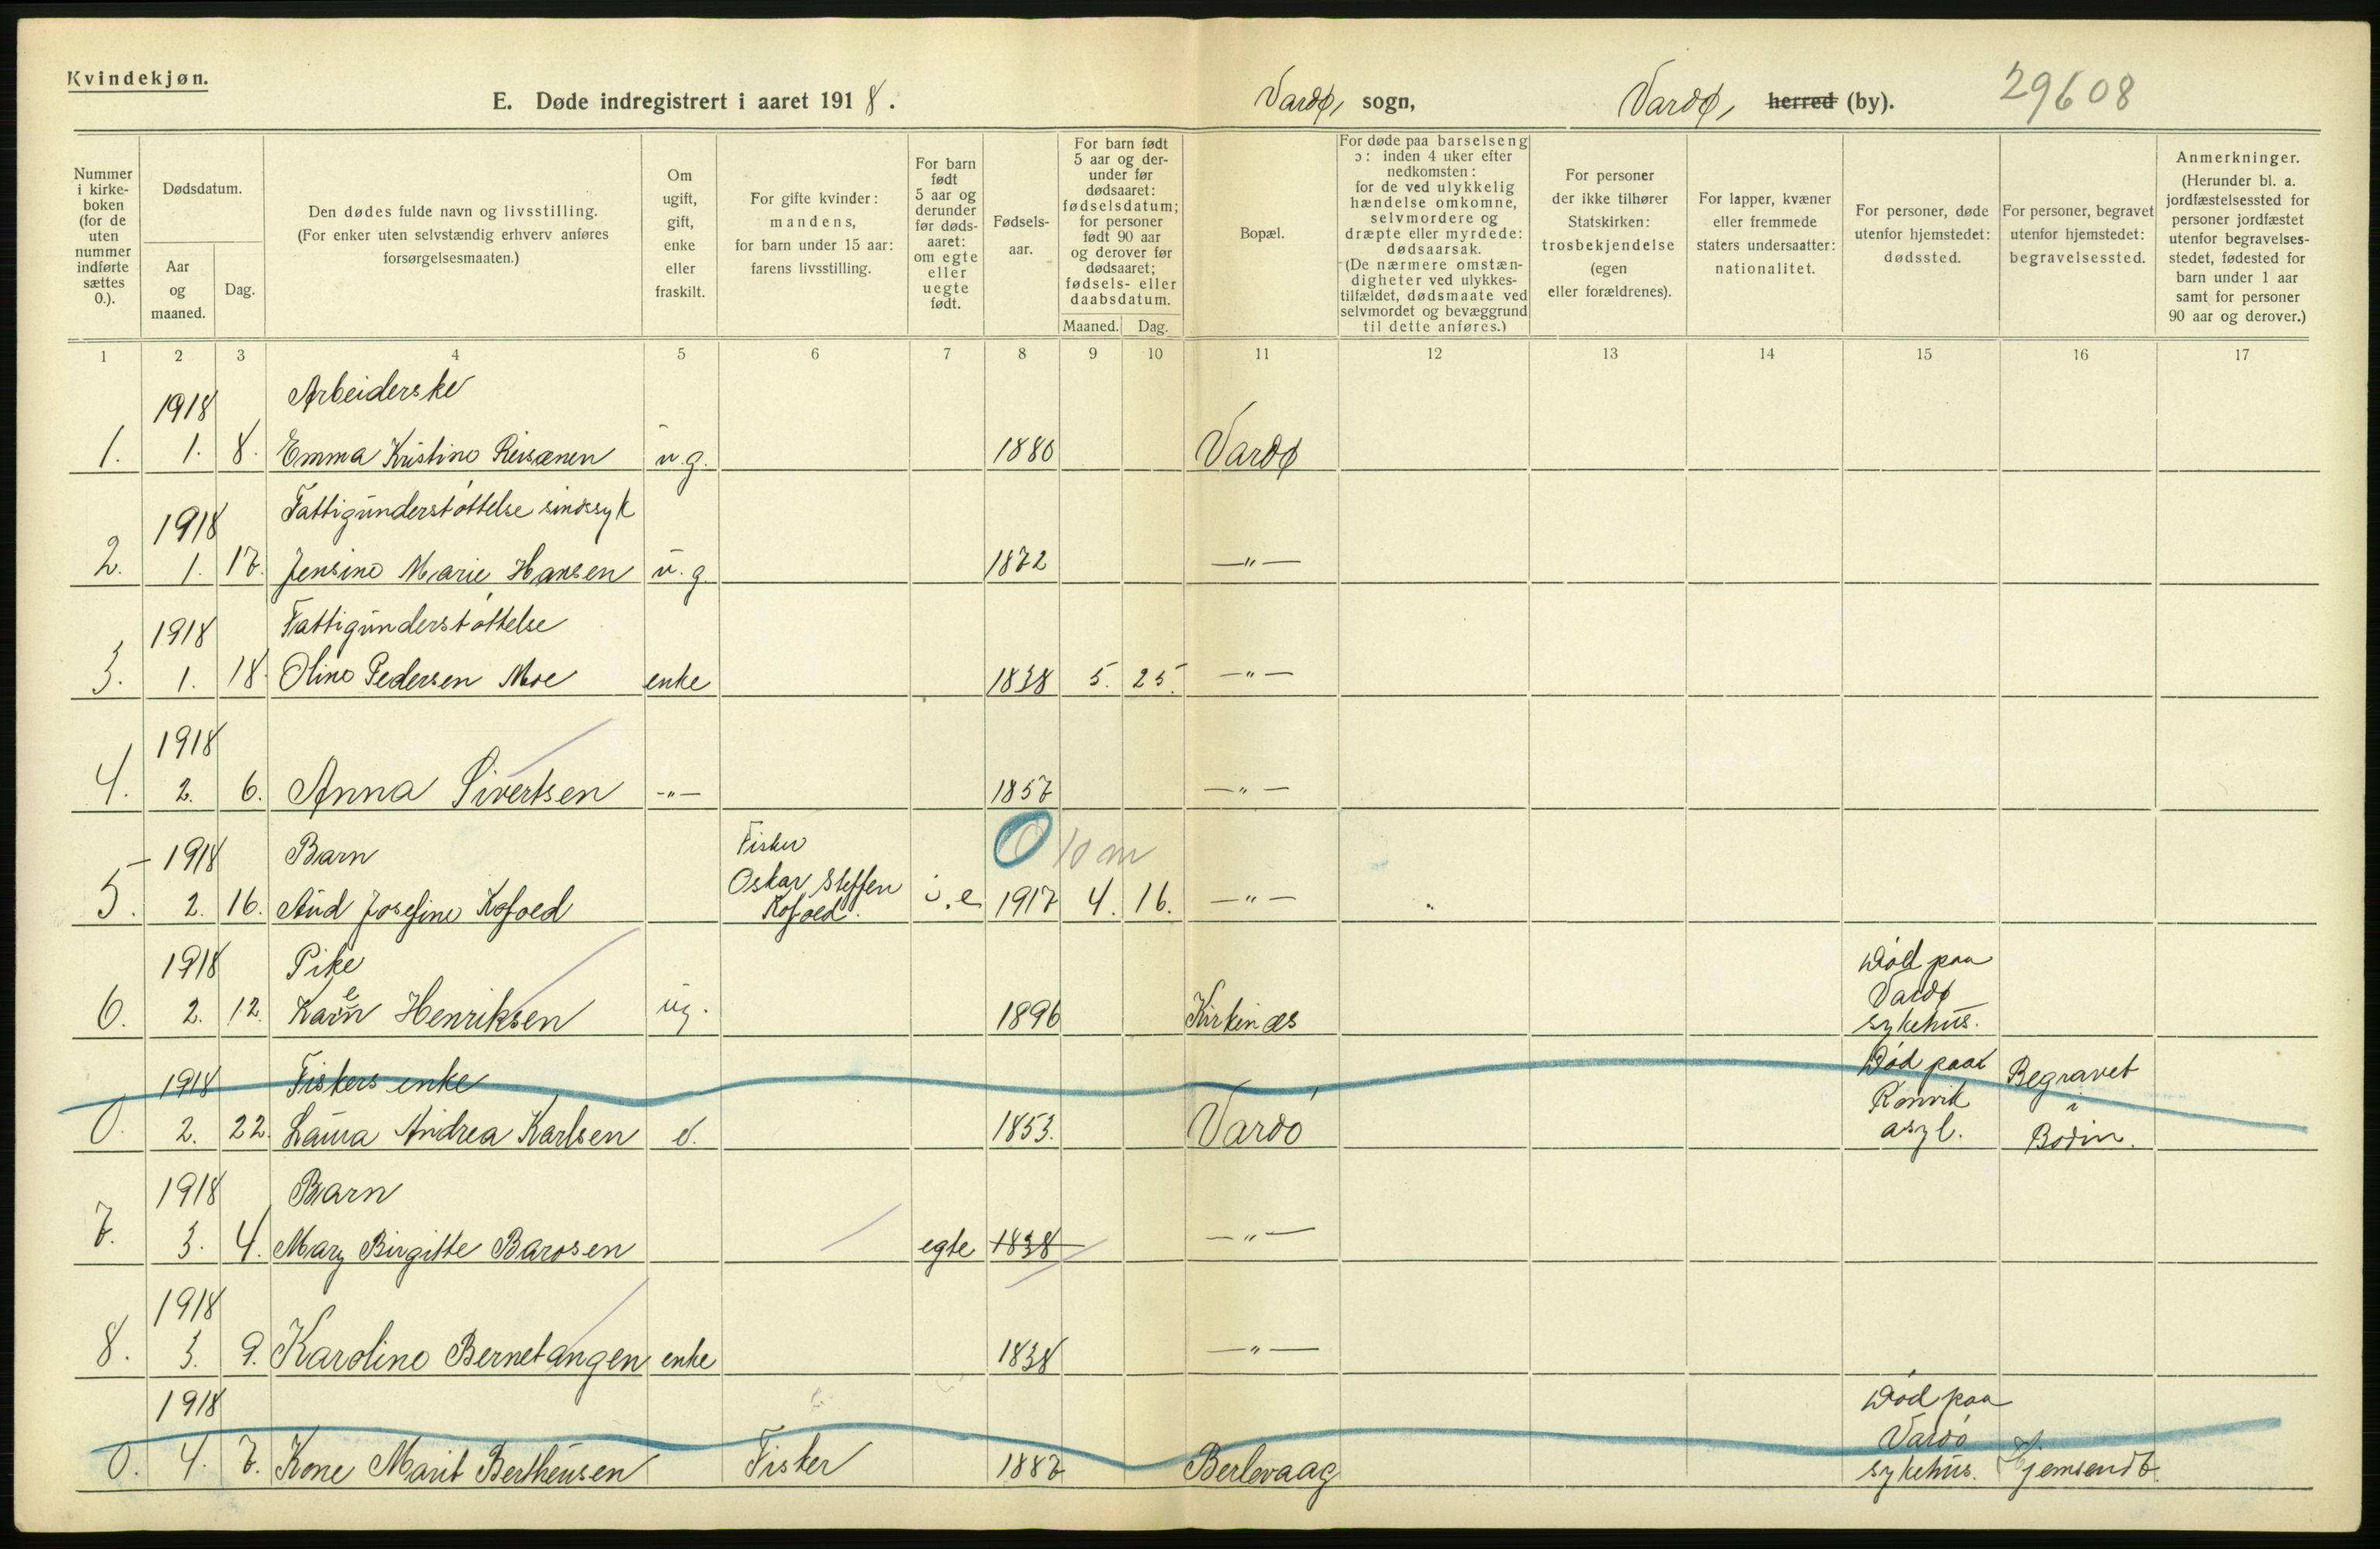 Kvindekjøn.
E. Døde indregistrert i aaret 1918.
Vardø, sogn,
Vardø, herred (by).
29608
Nummer i kirke-boken (for de uten nummer indførte sættes 0.).
Dødsdatum.
Aar og maaned.
Dag.
Den dødes fulde navn og livsstilling.
(For enker uten selvstændig erhverv anføres forsørgelsesmaaten.)
Om ugift, gift, enke eller fraskilt.
For gifte kvinder: mandens, for barn under 15 aar: farens livsstilling.
For barn født 5 aar og derunder før døds-aaret: om egte eller uegte født.
Fødsels-aar.
For barn født 5 aar og der-under før dødsaaret: fødselsdatum; for personer født 90 aar og derover før dødsaaret; fødsels- eller daabsdatum.
Maaned.
Dag.
Bopæl.
For døde paa barselseng ɔ: inden 4 uker efter nedkomsten: for de ved ulykkelig hændelse omkomne, selvmordere og dræpte eller myrdede: dødsaarsak.
(De nærmere omstæn-digheter ved ulykkes-tilfældet, dødsmaate ved selvmordet og bevæggrund til dette anføres.)
For personer der ikke tilhører Statskirken: trosbekjendelse (egen eller forældrenes).
For lapper, kvæner eller fremmede staters undersaatter: nationalitet.
For personer, døde utenfor hjemstedet: dødssted.
For personer, begravet utenfor hjemstedet: begravelsessted.
Anmerkninger.
(Herunder bl. a. jordfæstelsessted for personer jordfæstet utenfor begravelses-stedet, fødested for barn under 1 aar samt for personer 90 aar og derover.)
1 2 3 4 5 6 7 8 9 10 11 12 13 14 15 16 17
1918 Arbeiderske
1. 1. 8. Emma Kristine Reisænen u.g. 1880 Vardø
1918 Fattigunderstøttelse sindssyk
2. 1. 17. Jensine Marie Hansen u.g. 1872 —"—
1918 Fattigunderstøttelse
3. 1. 18. Oline Pedersen Moe enke 1838 5. 25. —"—
1918
4. 2. 6. Anna Sivertsen —"— 1857 —"—
1918 Barn Fisker 0 10 m
5. 2. 16. Aud Josefine Kofoed Oskar Steffen Kofoed. u.e 1917 4. 16. —"—
1918 Pike Død paa
6. 2. 12. Karen Henriksen ug. 1896 Kirkenæs Vardø sykehus.
1918 Fiskers enke Død paa Begravet
0. 2. 22. Laura Andrea Karlsen e. 1853. Vardø Rønvik asyl. i Bodin.
1918 Barn
7. 3. 4. Mary Birgitte Barosen egte 1838 —"—
1918
8. 3. 9. Karoline Bernetangen enke 1838 —"—
1918 Død paa
0. 4. 7. Kone Marit Bertheusen Fisker 1887 Berlevaag Vardø sykehus. Hjemsendt.